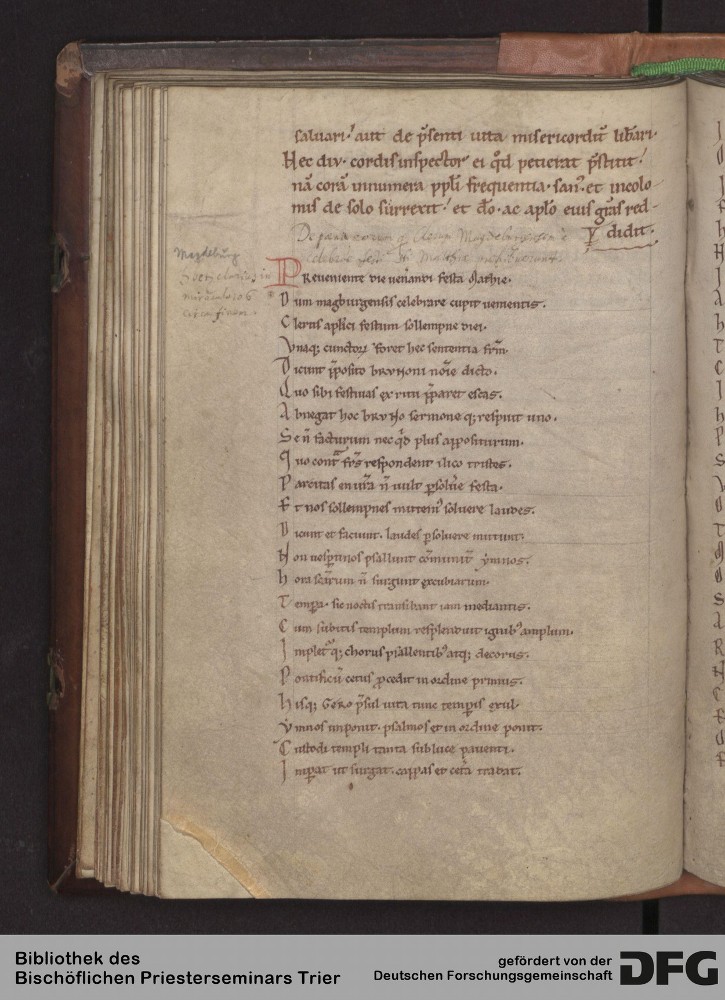 saluari· aut de p̄senti uita misericordit̄ lib̄ari·
Hec diu· cordis inspector ei q̄d petierat p̄stitit·
nā corā innumera pp̄li frequentia· san᷒· et incolo
mis de solo surrexit· et dō· ac ap̄lo eius gr̄as red-
didit·
Magdeburg
Preueniente die uen̄andi festa Mathie·
Dum magburgensis celebrare cupit uementis·
Clerus ap̄lici festum sollempne diei·
Vnaq; cunctoꝝ foret hec sententia fr̄m·
Dicunt p̄posito brunoni noīe dicto·
Quo sibi festiuas ex ritu p̄paret escas·
Abnegat hoc bruno sermone q; respuit uno·
Se n̄ facturum nec q̄d plus appositurum·
Quo cont̄ fr̄s respondent ilico tristes·
Parcitas en ūra n̄ uult p̄soluere festa·
Et nos sollempnes mittem᷒ soluere laudes·
Dicunt et faciunt· laudes p̄soluere mittunt·
Non uesp̄tinos psallunt cōmunit̄ ymnos·
hora sac̄rum n̄ surgunt excubiarum·
Temp̄a· sic noctis transibant iam mediantis·
Cum subitis templum resplenduit ignib᷒ amplum·
Implet᷒q; chorus psallentib᷒ atq; decorus·
Pontificū cetus p̄cedit in ordine primus·
hisq; Gero p̄sul uita tunc temp̄is exul·
Ymnos inponit· psalmos et in ordine ponit·
Custodi templi tanta sub luce pauenti·
Imp̄at ut surgat· cappas et cet̄a tradat·
Bibliothek des
Bischöflichen Priesterseminars Trier
gefördert von der
Deutschen Forschungsgemeinschaft
DFG